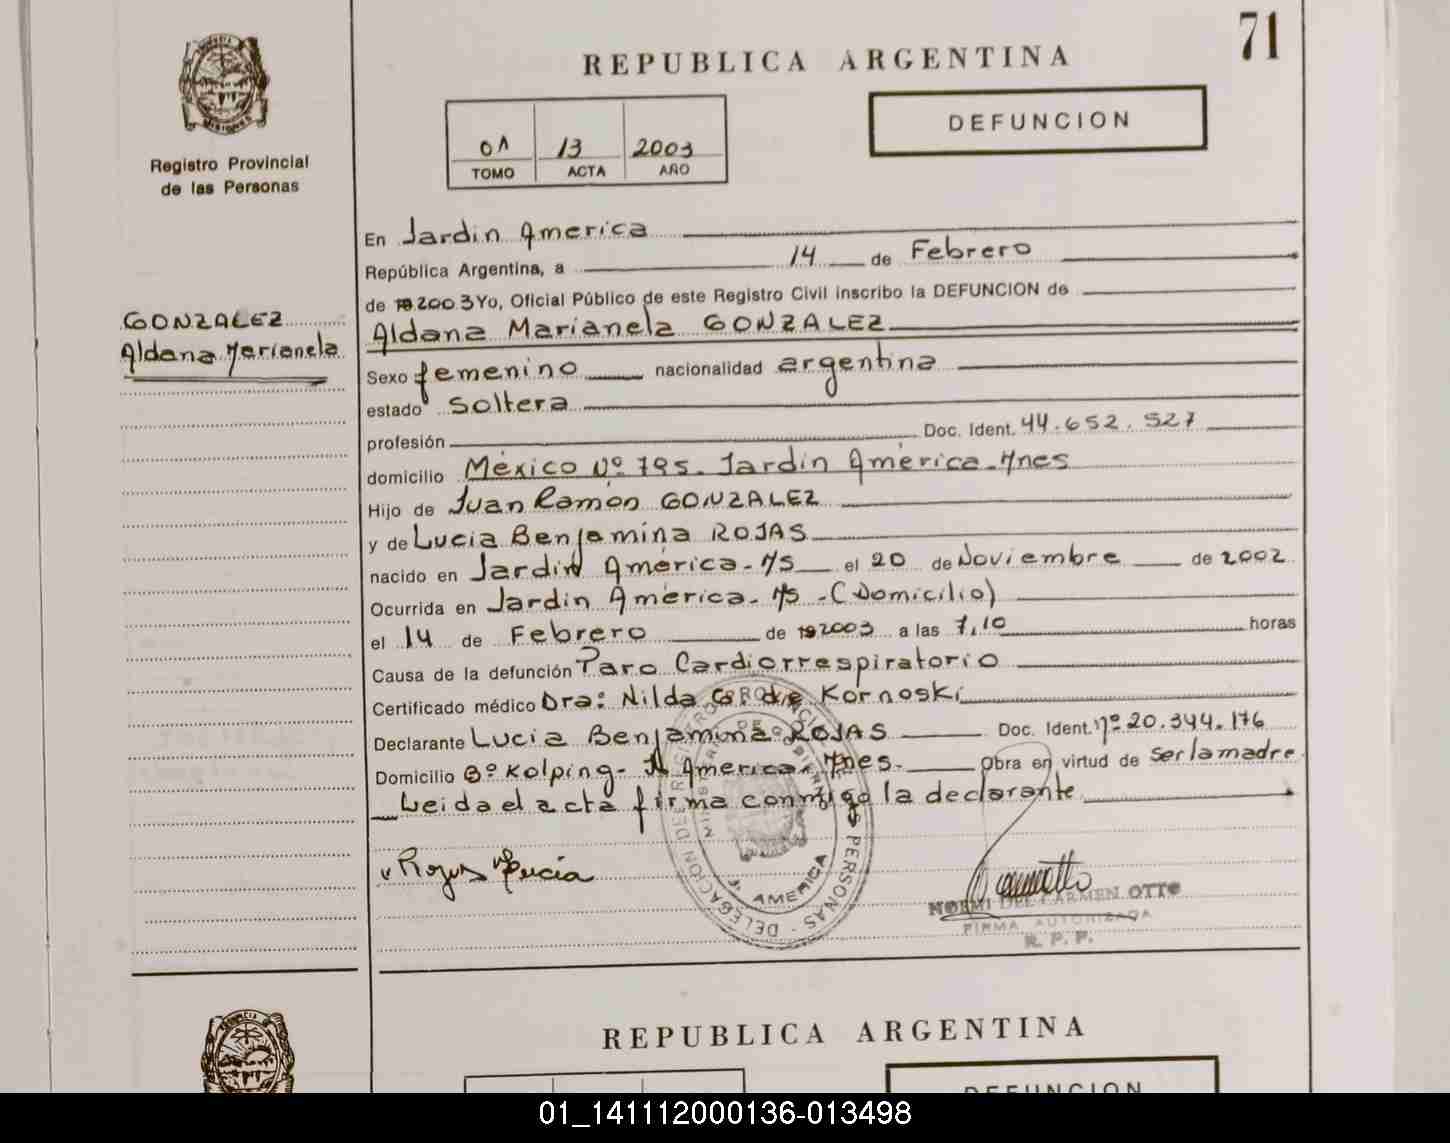 71
REPUBLICA ARGENTINA
DEFUNCION
01 13 2003
TOMO ACTA AÑO
Registro Provincial
de las Personas
GONZALEZ
Aldana Marianela
En Jardin America
República Argentina, a 14 de Febrero
de 192003 Yo, Oficial Público de este Registro Civil inscribo la DEFUNCION de
Aldana Marianela GONZALEZ
Sexo femenino nacionalidad argentina
estado Soltera
profesión Doc. Ident. 44.652.527
domicilio México Nº 795. Jardin América-Mnes
Hijo de Juan Ramón GONZALEZ
y de Lucia Benjamina ROJAS
nacido en Jardin América-M/s el 20 de Noviembre de 2002
Ocurrida en Jardin América-M/s-(Domicilio)
el 14 de Febrero de 192003 a las 7,10 horas
Causa de la defunción Paro Cardiorrespiratorio
Certificado médico Dra: Nilda G. de Kornoski
Declarante Lucia Benjamina ROJAS Doc. Ident. Nº 20.344.176
Domicilio Bº Kolping- Jn America. Mnes. Obra en virtud de ser la madre
Leida el acta firma conmigo la declarante
Rojas Lucia
REGISTRO PROVINCIAL DE LAS PERSONAS - DELEGACION
MINISTERIO DE GOBIERNO
J. AMERICA
NOEMI DEL CARMEN OTTO
FIRMA AUTORIZADA
R. P. P.
REPUBLICA ARGENTINA
DEFUNCION
01_141112000136-013498